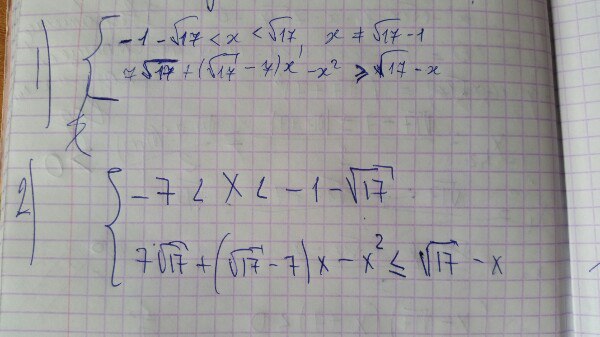 1) { -1 - √17 < x < √17, x ≠ √17 - 1
7√17 + (√17 - 7)x - x² ≥ √17 - x
2) { -7 < x < -1 - √17
7√17 + (√17 - 7)x - x² ≤ √17 - x